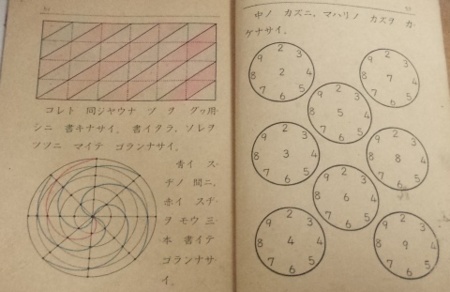 コレト 同ジヤウナ ヅ ヲ グヮ用
シニ 書キナサイ。書イタラ、ソレヲ
ツツニ マイテ ゴランナサイ。
青イ ス
ヂノ 間ニ、
赤イ スヂ
ヲ モウ 三
本 書イテ
ゴランナサ
イ。
中ノ カズニ、マハリノ カズヲ カ
ケナサイ。
9 2 3
8 2 4
7 6 5
9 2 3
8 7 4
7 6 5
9 2 3
8 5 4
7 6 5
9 2 3
8 3 4
7 6 5
9 2 3
8 8 4
7 6 5
9 2 3
8 6 4
7 6 5
9 2 3
8 4 4
7 6 5
9 2 3
8 9 4
7 6 5